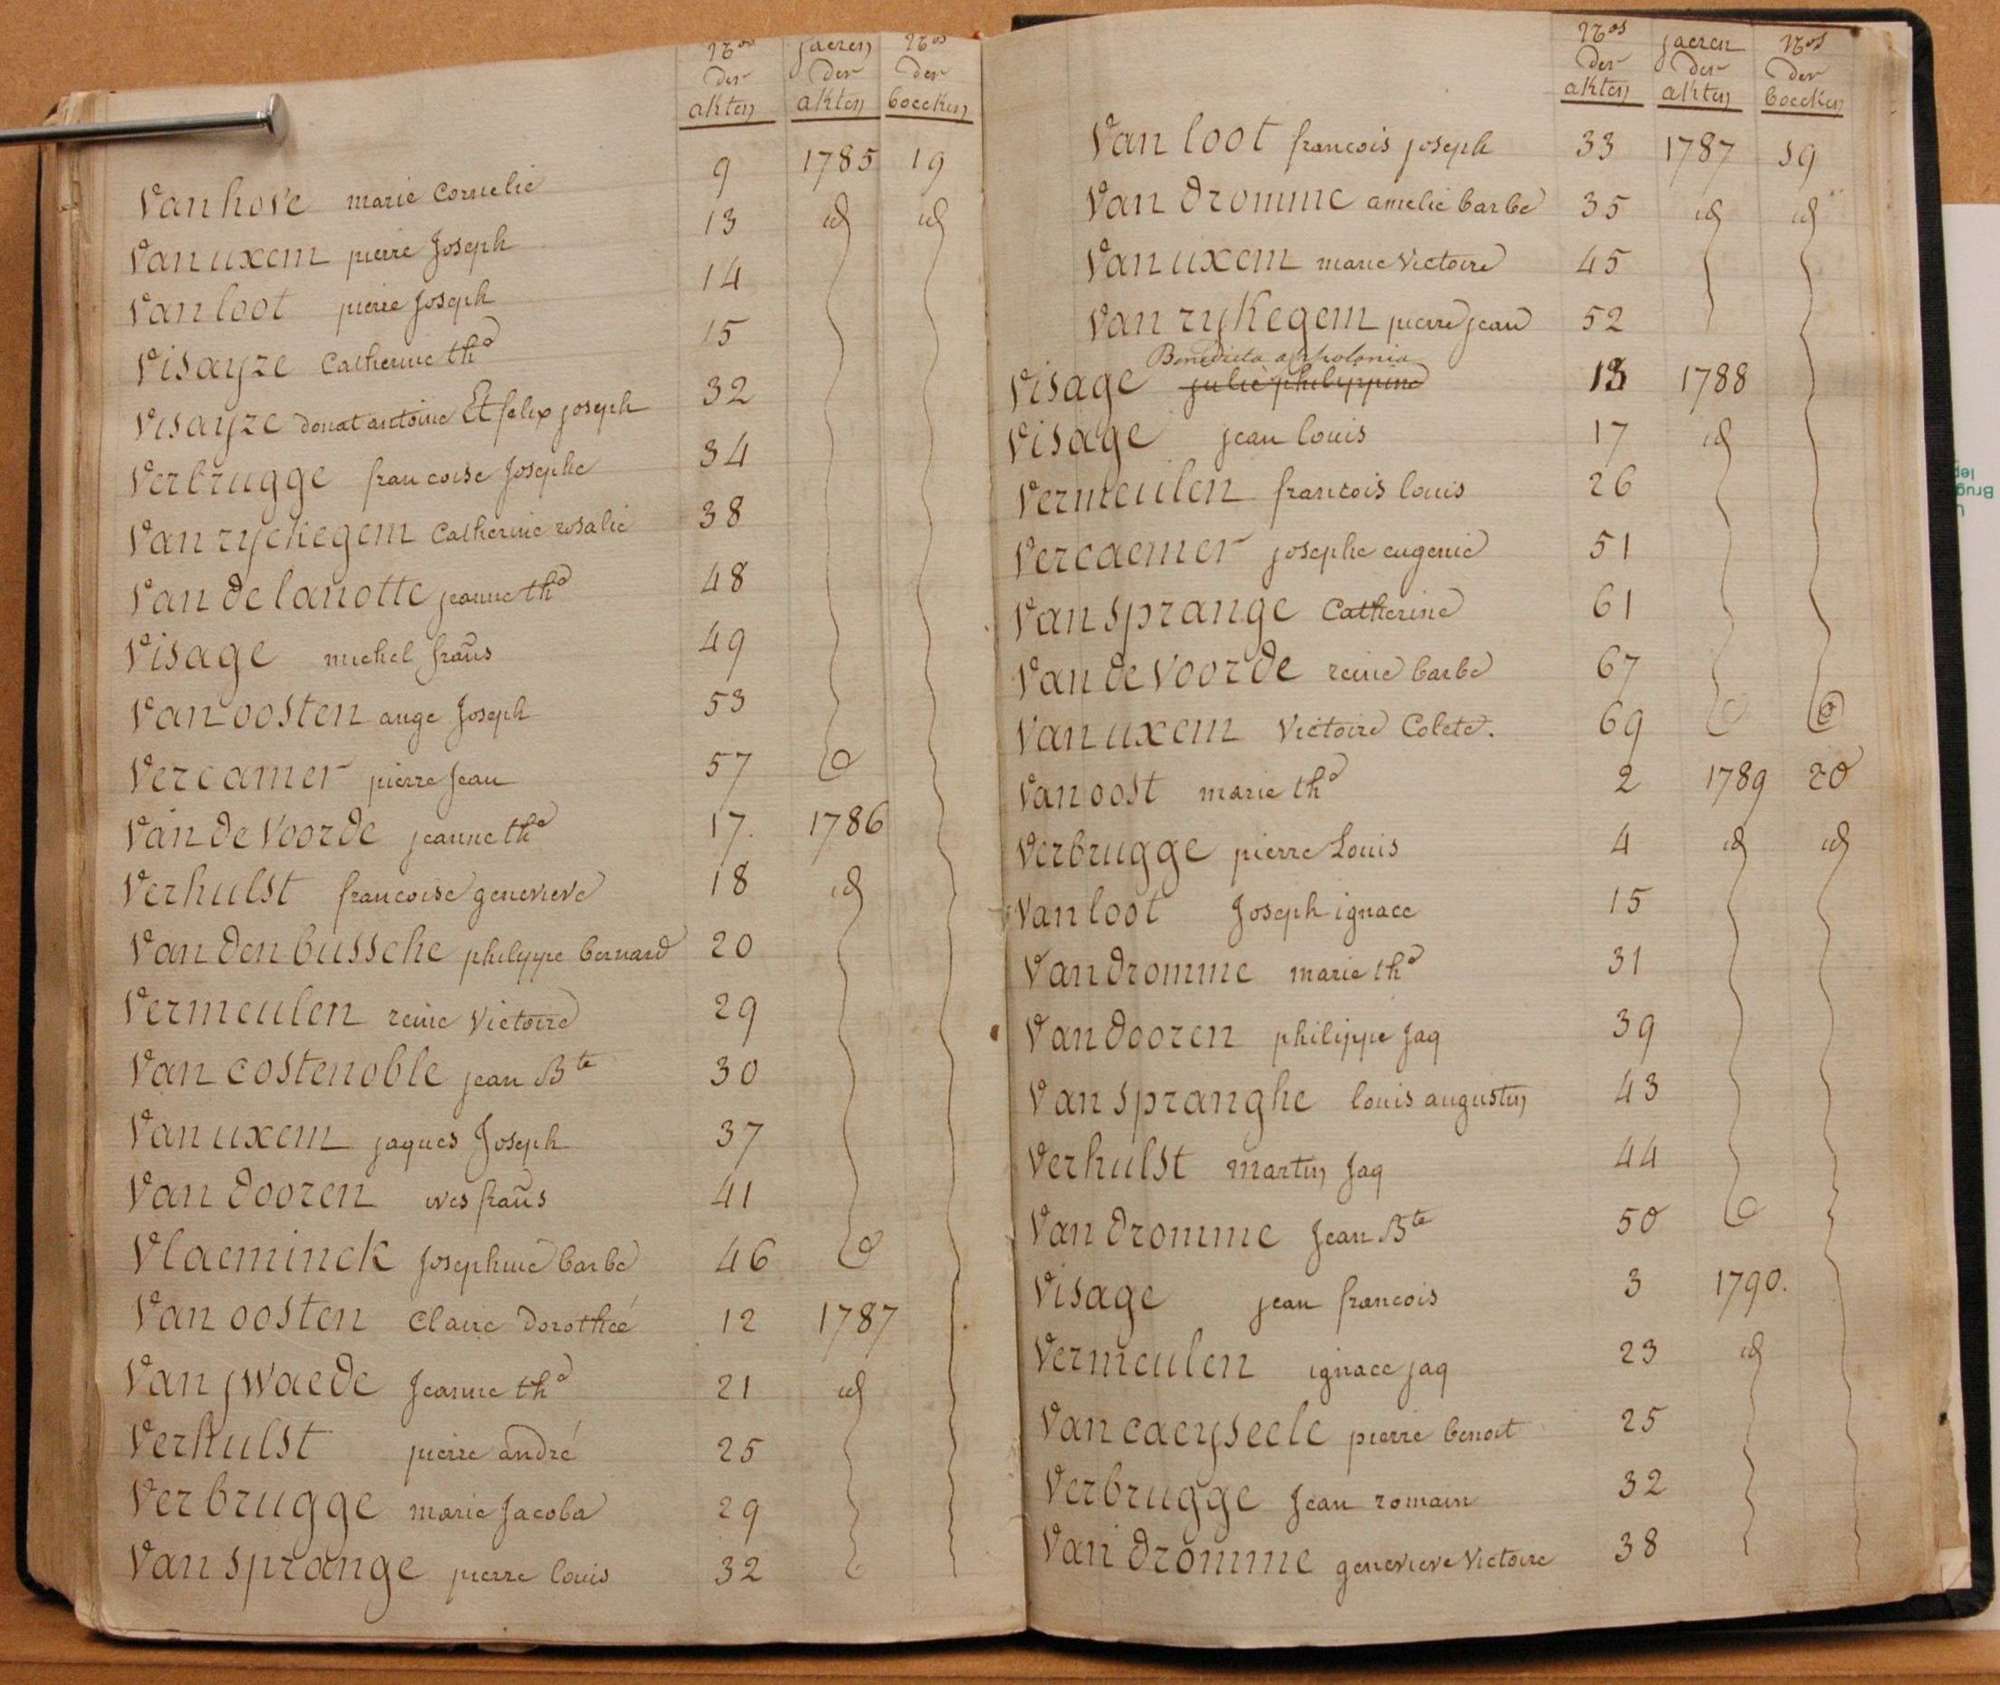 Nos jaeren Nos
der der der
akten akten boecken
Vanhove marie Cornelie 9 1785 19
Vanuxem pierre Joseph 13 id id
Vanloot pierre Joseph 14
Visayze Catherine the 15
Visayze donat antoine Et felix joseph 32
Verbrugge francoise Josephe 34
Vanryckegem Catherine rosalie 38
Van de lanotte jeanne the 48
Visage michel frans 49
Vanoosten ange Joseph 53
Vercamer pierre Jean 57
Van de Voorde jeanne the 17. 1786
Verhulst francoise genevieve 18 id
Van den bussche philippe bernard 20
Vermeulen reine Victoire 29
Van costenoble jean Bte 30
Vanuxem jaques Joseph 37
Van dooren ives frans 41
Vlaeminck Josephine barbe 46
Van oosten Claire Dorothée 12 1787
Van jwaede Jeanne the 21 id
Verhulst pierre andré 25
Verbrugge marie Jacoba 29
Van sprange pierre louis 32
Nos jaeren Nos
der der der
akten akten boecken
Van loot francois joseph 33 1787 19
Van dromme amelie barbe 35 id id
Vanuxem marie Victoire 45
Van rijkegem pierre jean 52
Benedicta appolonia
Visage julie philippine 13 1788
Visage jean louis 17 id
Vermeulen francois louis 26
Vercaemer josephe eugenie 51
Van sprange Catherine 61
Van de Voorde reine barbe 67
Vanuxem Victoire Colete. 69
Vanoost marie the 2 1789 20
Verbrugge pierre Louis 4 id id
Vanloot Joseph ignace 15
Vandromme marie the 31
Van dooren philippe Jaq 39
Van spranghe louis augustin 43
Verhulst martin Jaq 44
Van dromme Jean Bte 50
Visage jean francois 3 1790.
Vermeulen ignace jaq 23 id
Van caeyseele pierre benoit 25
Verbrugge Jean romain 32
Van dromme genevieve Victoire 38